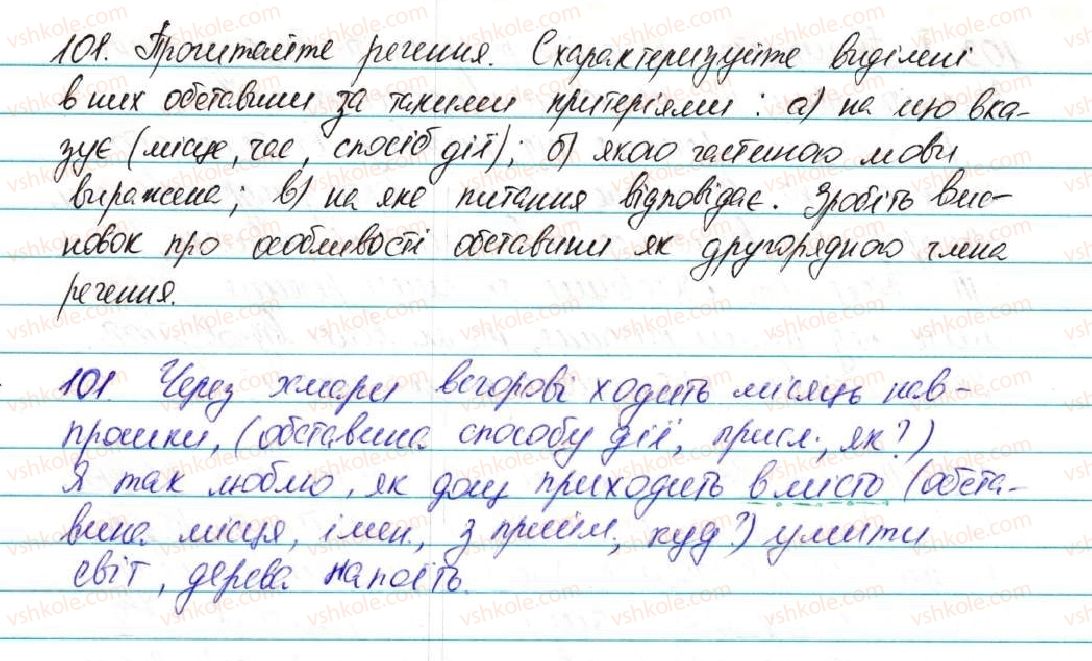 101. Прочитайте речення. Схарактеризуйте виділені
в них обставини за такими критеріями: а) на що вка-
зує (місце, час, спосіб дії); б) якою частиною мови
виражена; в) на яке питання відповідає. Зробіть вис-
новок про особливості обставини як другорядного члена
речення.
101. Через хмари вечорові ходить місяць нав-
прошки, (обставина способу дії, присл., як?)
Я так люблю, як дощ приходить в місто (обста-
вина місця, імен., з прийм., куд?) умити
світ, дерева напоїть.